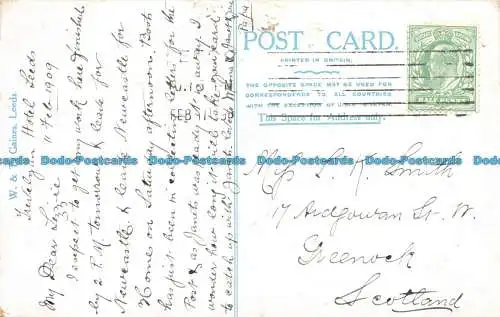 POST CARD.
PRINTED IN BRITAIN.
THE OPPOSITE SPACE MAY BE USED FOR
CORRESPONDENCE TO ALL COUNTRIES
WITH THE EXCEPTION OF
This Space for Address only.
HALF PENNY
FEB 11
Miss L. K. Smith
17 Ardgowan St. W.
Greenock
Scotland
W. & Gaines, Leeds.
Hotel Leeds
11 Feb 1909
My Dear Lizzie
I expect to get my work here finished
by 2 P.M. tomorrow & leave for
Newcastle & leave Newcastle for
Home on Saturday afternoon. Boots
has just been in collecting letters for the
Post & as Janets was ready it is away. I
wonder how long it will take your card
to catch up with Janets
Dodo-Postcards Dodo-Postcards Dodo-Postcards Dodo-Postcards Dodo-Postcards